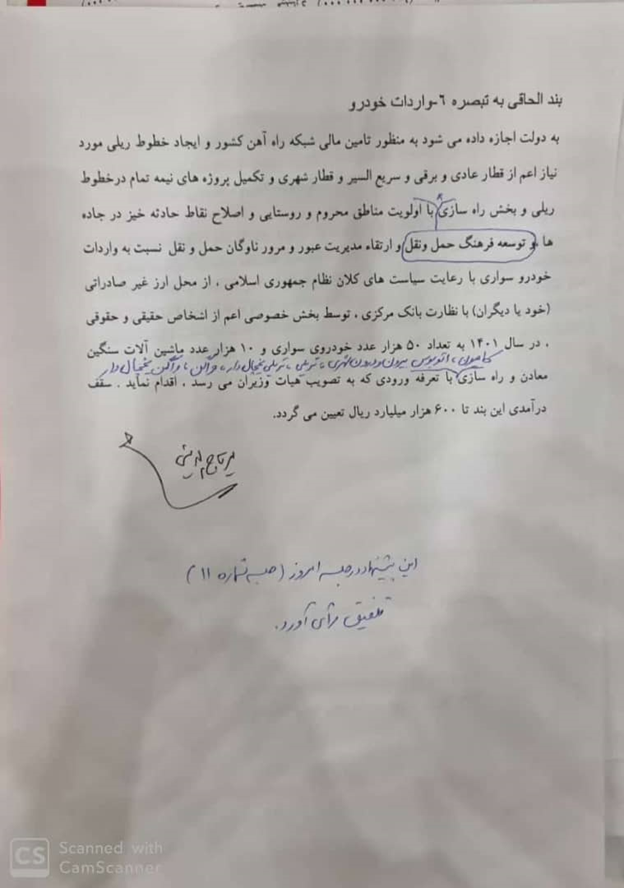 بند الحاقی به تبصره ۶-واردات خودرو
به دولت اجازه داده می شود به منظور تامین مالی شبکه راه آهن کشور و ایجاد خطوط ریلی مورد
نیاز اعم از قطار عادی و برقی و سریع السیر و قطار شهری و تکمیل پروژه های نیمه تمام درخطوط
ریلی و بخش راه سازی با اولویت مناطق محروم و روستایی و اصلاح نقاط حادثه خیز در جاده
ها و توسعه فرهنگ حمل ونقل و ارتقاء مدیریت عبور و مرور ناوگان حمل و نقل نسبت به واردات
خودرو سواری با رعایت سیاست های کلان نظام جمهوری اسلامی ، از محل ارز غیر صادراتی
(خود یا دیگران) با نظارت بانک مرکزی ، توسط بخش خصوصی اعم از اشخاص حقیقی و حقوقی
، در سال ۱۴۰۱ به تعداد ۵۰ هزار عدد خودروی سواری و ۱۰ هزار عدد ماشین آلات سنگین
کامیون ، اتوبوس برون و درون شهری ، تریلی یخچال دار ، واگن ، واگن یخچال دار
معادن و راه سازی با تعرفه ورودی که به تصویب هیات وزیران می رسد ، اقدام نماید . سقف
درآمدی این بند تا ۶۰۰ هزار میلیارد ریال تعیین می گردد.
این پیشنهاد در جلسه امروز (جلسه شماره ۱۱)
تلفیق رأی آورد.
CS Scanned with
CamScanner